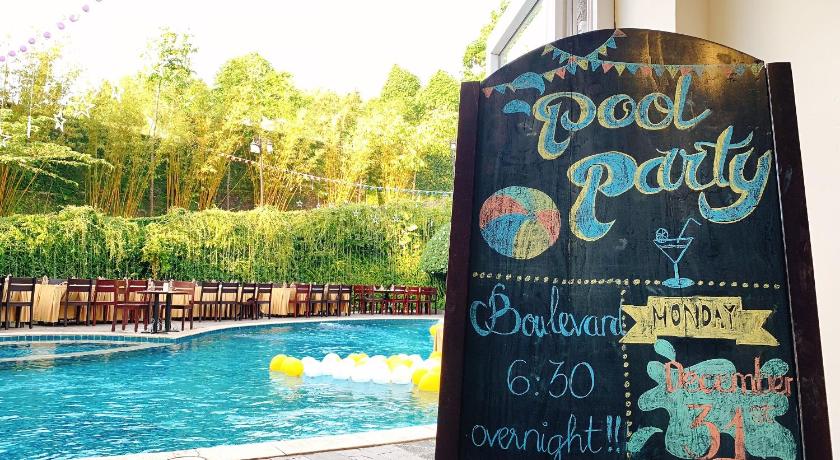 Pool
Party
Boulevard
6:30
overnight!!
MONDAY
December
31st